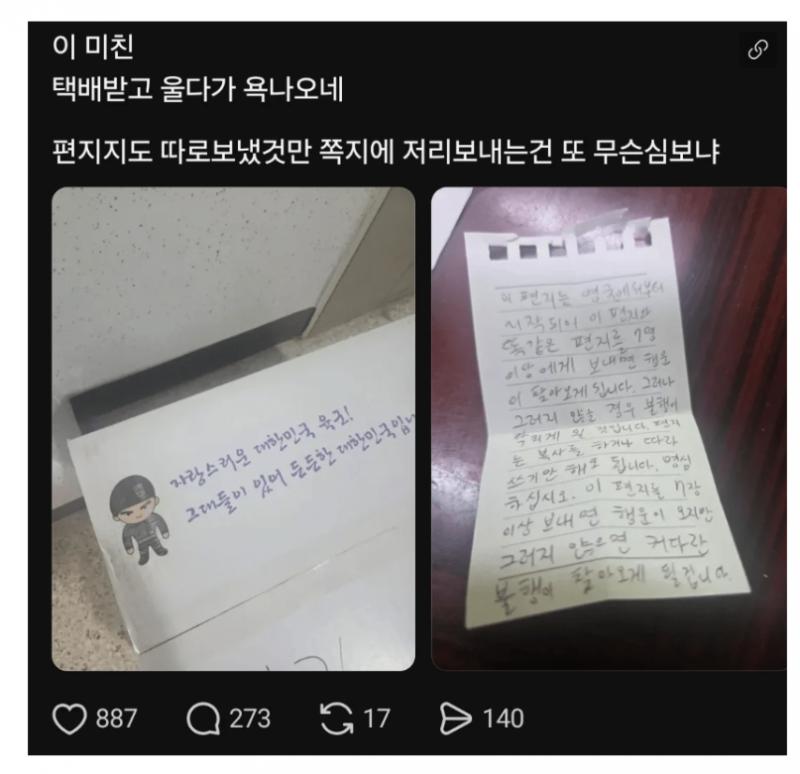 이 미친
택배받고 울다가 욕나오네
편지지도 따로보냈것만 쪽지에 저리보내는건 또 무슨심보냐
자랑스러운 대한민국 육군!
그대들이 있어 든든한 대한민국입니
이 편지는 영국에서부터
시작되어 이 편지와
똑같은 편지를 7명
이상에게 보내면 행운
이 찾아오게 됩니다. 그러나
그러지 않을 경우 불행이
될 것입니다. 편지
는 복사를 하거나 따라
쓰기만 해도 됩니다. 명심
하십시오. 이 편지를 7장
이상 보내면 행운이 오지만
그러지 않으면 커다란
불행이 찾아오게 될겁니다.
887
273
17
140